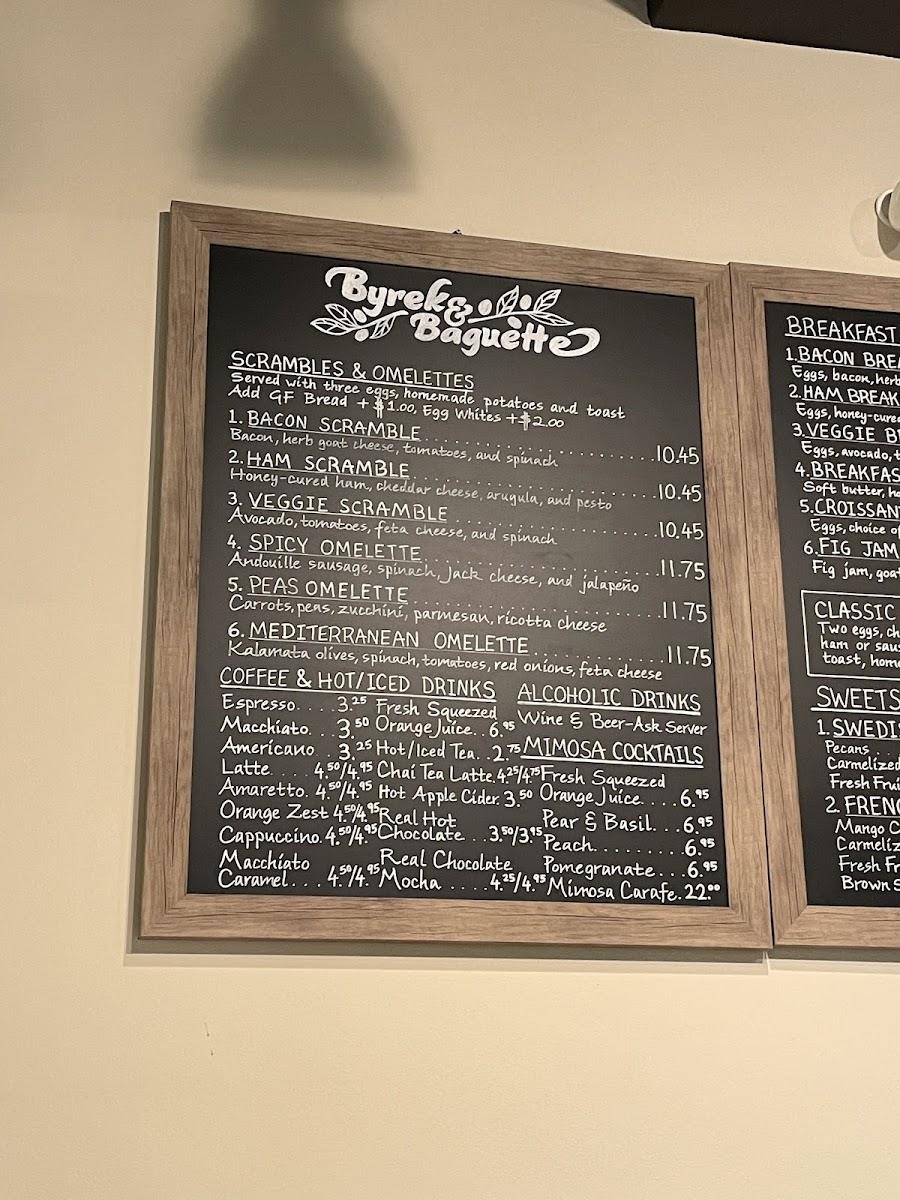 Byrek &
Baguette
SCRAMBLES & OMELETTES
Served with three eggs, homemade potatoes and toast
Add GF Bread + $1.00, Egg Whites + $2.00
1. BACON SCRAMBLE 10.45
Bacon, herb goat cheese, tomatoes, and spinach
2. HAM SCRAMBLE 10.45
Honey-cured ham, cheddar cheese, arugula, and pesto
3. VEGGIE SCRAMBLE 10.45
Avocado, tomatoes, feta cheese, and spinach
4. SPICY OMELETTE 11.75
Andouille sausage, spinach, jack cheese, and jalapeño
5. PEAS OMELETTE 11.75
Carrots, peas, zucchini, parmesan, ricotta cheese
6. MEDITERRANEAN OMELETTE 11.75
Kalamata olives, spinach, tomatoes, red onions, feta cheese
COFFEE & HOT/ICED DRINKS
Espresso.... 3.25
Macchiato... 3.50
Americano 3.25
Latte..... 4.50/4.95
Amaretto. 4.50/4.95
Orange Zest 4.50/4.95
Cappuccino. 4.50/4.95
Macchiato
Caramel... 4.50/4.95
Fresh Squeezed
Orange Juice.. 6.95
Hot/Iced Tea.. 2.75
Chai Tea Latte. 4.25/4.75
Hot Apple Cider. 3.50
Real Hot
Chocolate ... 3.50/3.95
Real Chocolate
Mocha ..... 4.25/4.95
ALCOHOLIC DRINKS
Wine & Beer-Ask Server
MIMOSA COCKTAILS
Fresh Squeezed
Orange Juice.... 6.95
Pear & Basil... 6.95
Peach......... 6.95
Pomegranate... 6.95
Mimosa Carafe. 22.00
BREAKFAST
1. BACON BREA
Eggs, bacon, herb
2. HAM BREAK
Eggs, honey-cured
3. VEGGIE B
Eggs, avocado, t
4. BREAKFAS
Soft butter, ha
5. CROISSAN
Eggs, choice of
6. FIG JAM
Fig jam, goa
CLASSIC
Two eggs, ch
ham or saus
toast, home
SWEETS
1. SWEDIS
Pecans
Carmelized
Fresh Frui
2. FRENC
Mango C
Carmeliz
Fresh Fr
Brown S